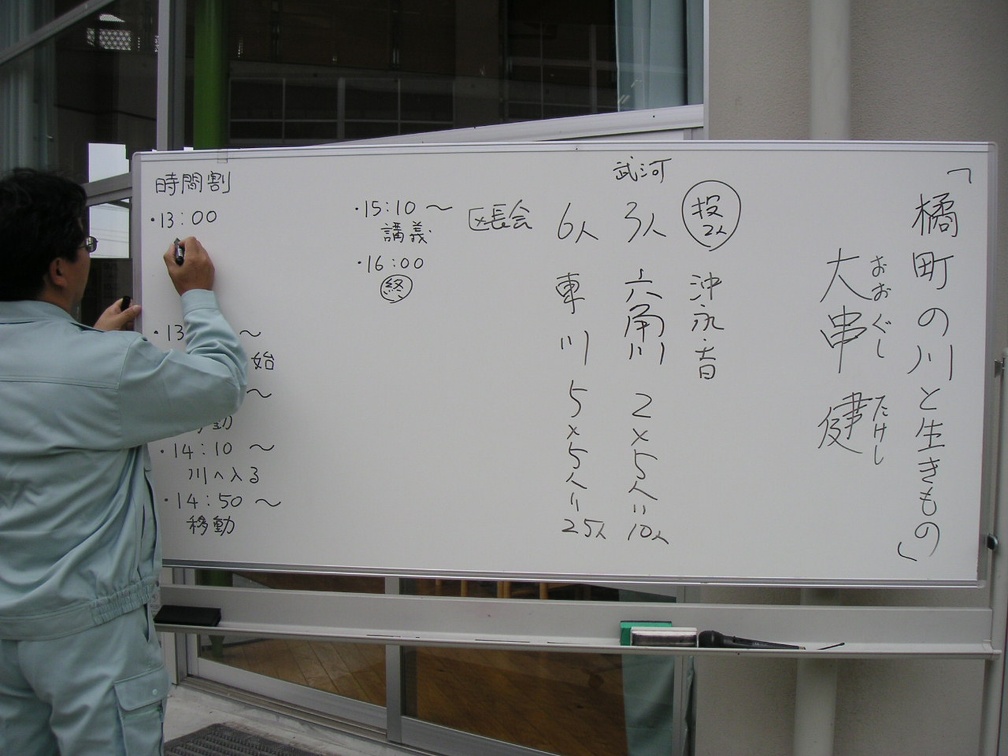 「橘町の川と生きもの」
おおぐし たけし
大串 健
投
2人
沖永・音
武河
3人
六角川
2×5人=10人
6人
東川
5×5人=25人
区長会
時間割
・13:00
・13
～
始
～
動
・14:10～
川へ入る
・14:50～
移動
・15:10～
講義
・16:00
終